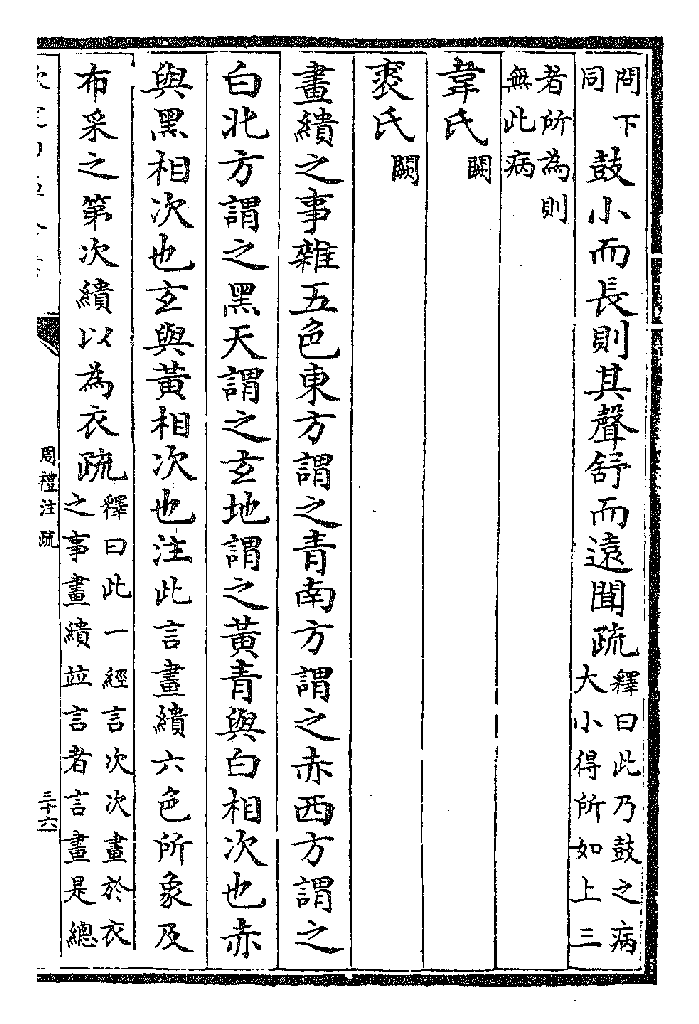 問下
同
鼓小而長則其聲舒而遠聞疏
釋曰此乃鼓之病
大小得所如上三
者所為則
無此病
韋氏闕
裘氏闕
畫繢之事雜五色東方謂之青南方謂之赤西方謂之
白北方謂之黑天謂之玄地謂之黃青與白相次也赤
與黑相次也玄與黃相次也注此言畫繢六色所象及
布采之第次繢以為衣疏
釋曰此一經言次次畫於衣
之事畫繢竝言者言畫是總
周禮注疏
三十六